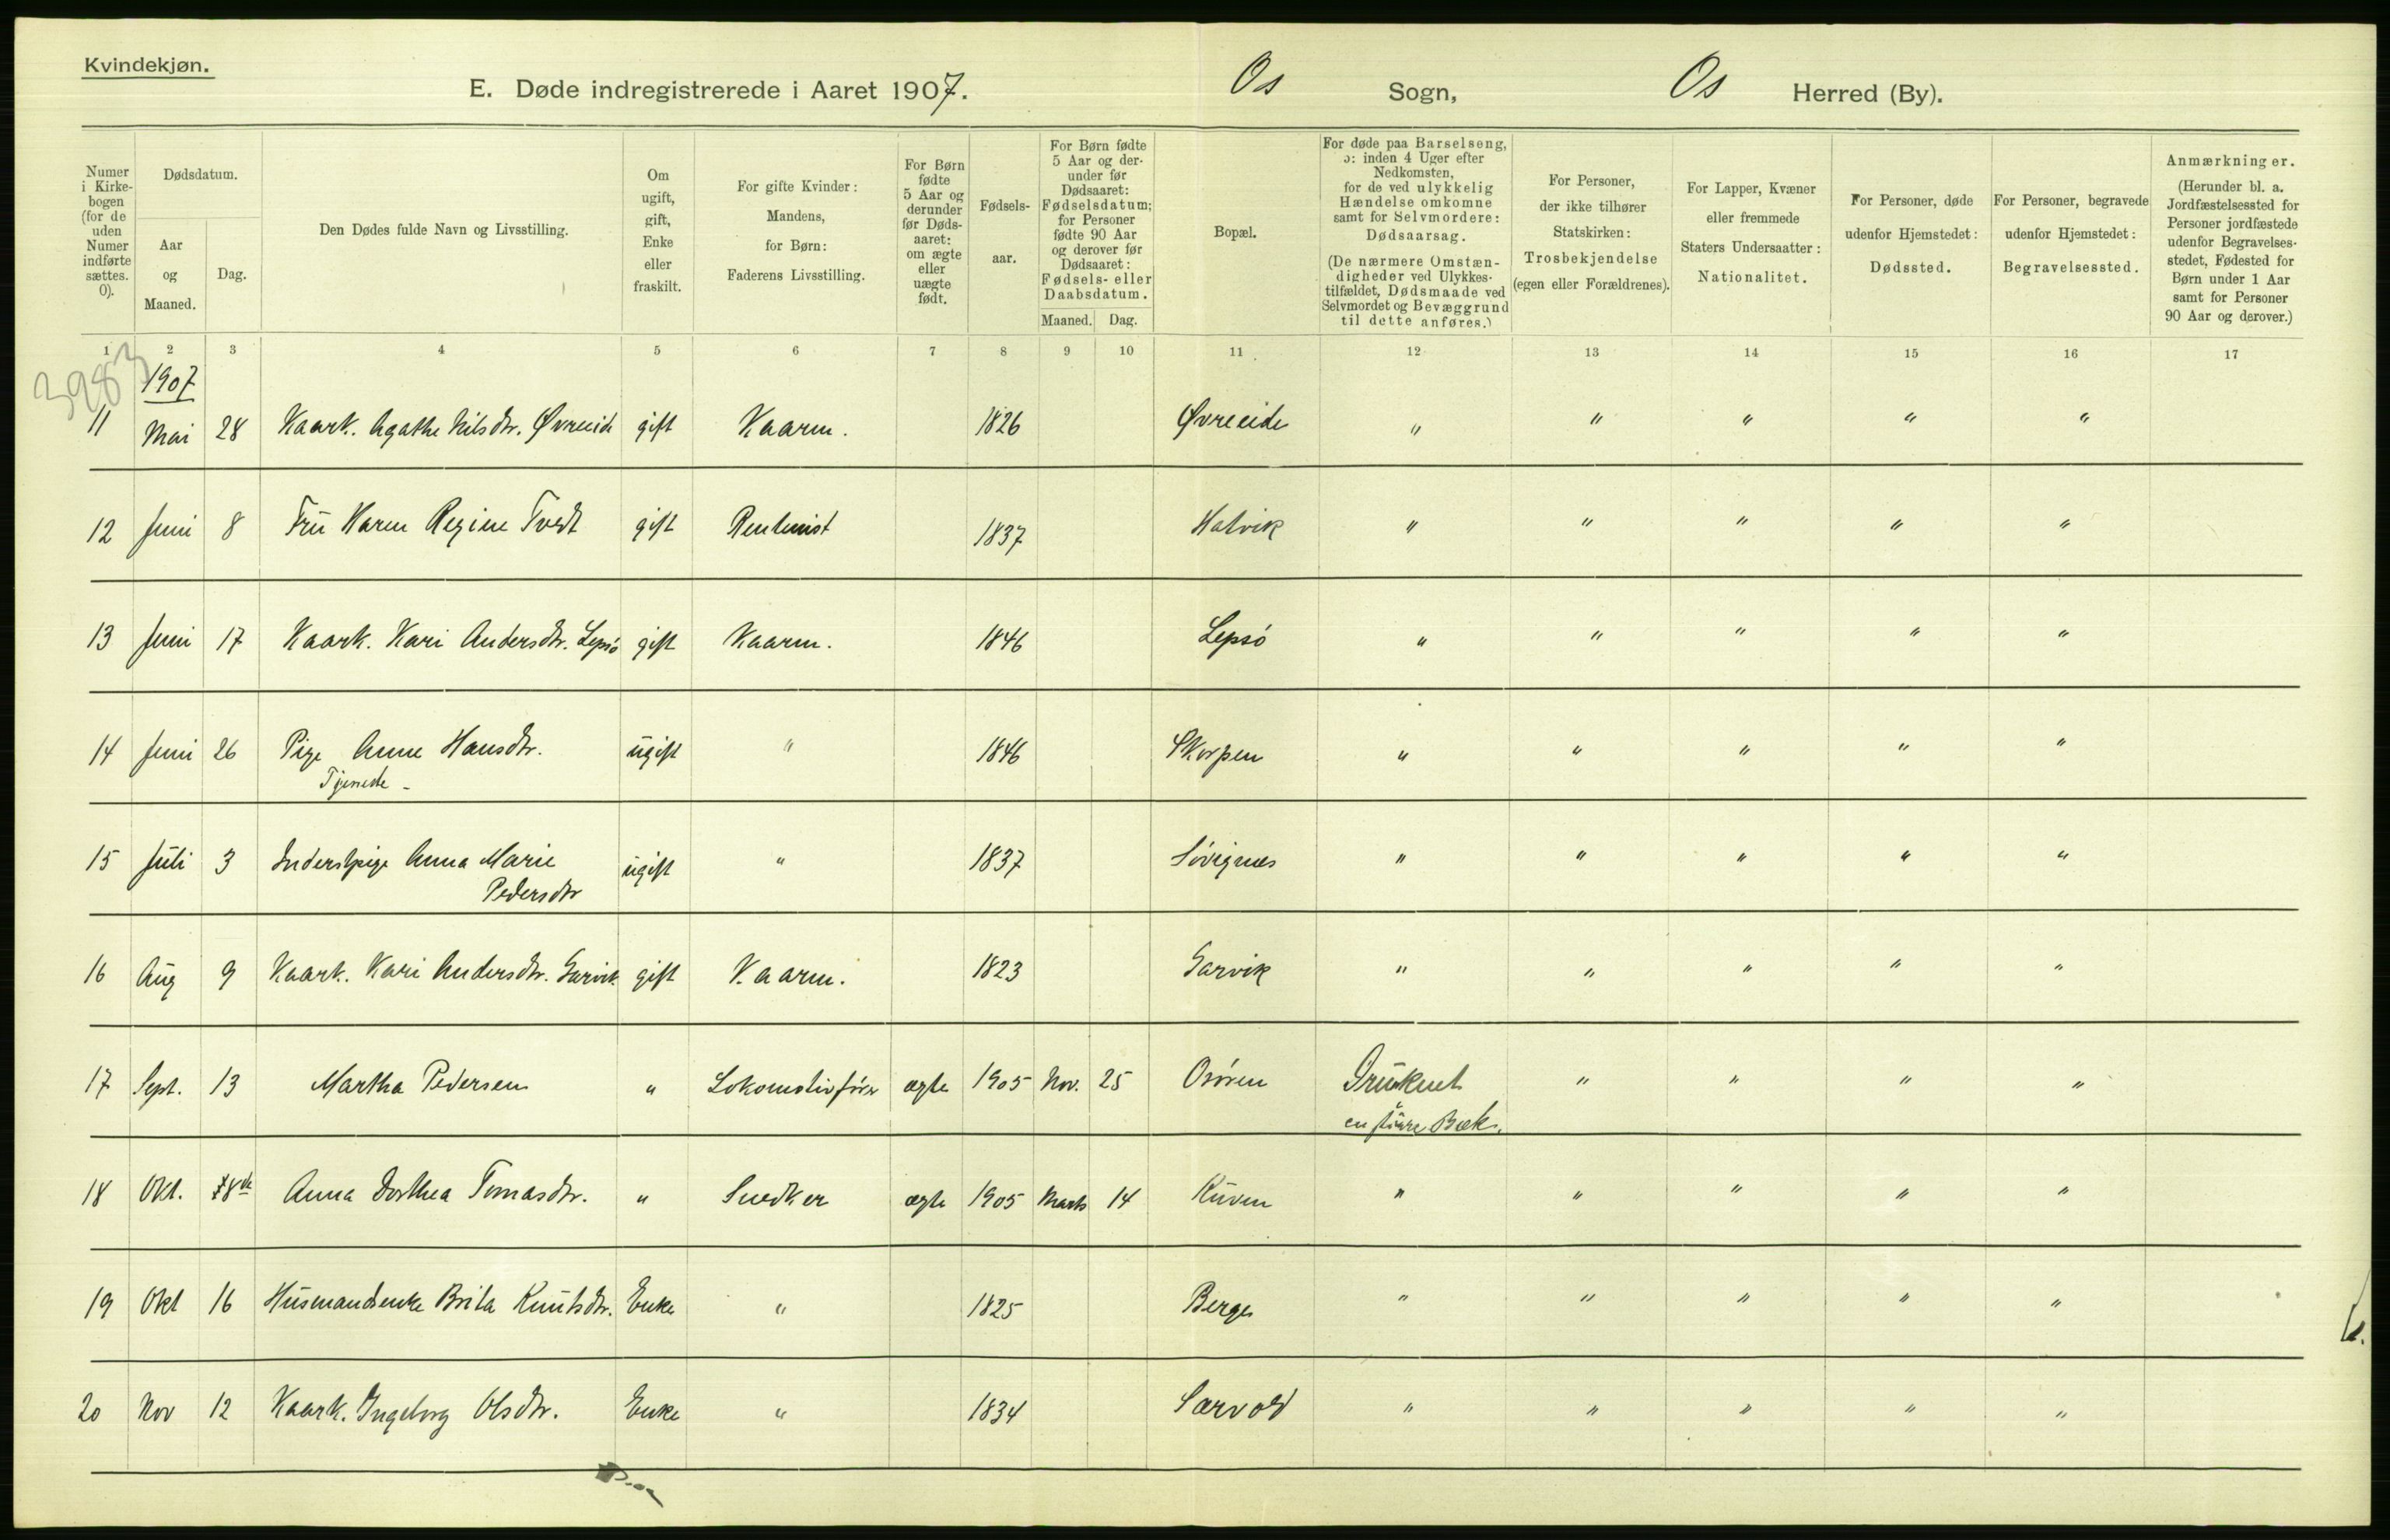 Kvindekjøn.
E. Døde indregistrerede i Aaret 1907. Os Sogn, Os Herred (By).
Numer i Kirke- bogen (for de uden Numer indførte sættes. 0).
Dødsdatum.
Aar og Maaned.
Dag.
Den Dødes fulde Navn og Livsstilling.
Om ugift, gift, Enke eller fraskilt.
For gifte Kvinder: Mandens, for Børn: Faderens Livsstilling.
For Børn fødte 5 Aar og derunder før Døds- aaret: om ægte eller uægte født.
Fødsels- aar.
For Børn fødte 5 Aar og der- under før Dødsaaret: Fødselsdatum; for Personer fødte 90 Aar og derover før Dødsaaret: Fødsels- eller Daabsdatum.
Maaned. Dag.
Bopæl.
For døde paa Barselseng, ɔ: inden 4 Uger efter Nedkomsten, for de ved ulykkelig Hændelse omkomne samt for Selvmordere: Dødsaarsag. (De nærmere Omstæn- digheder ved Ulykkes- tilfældet, Dødsmaade ved Selvmordet og Bevæggrund til dette anføres.)
For Personer, der ikke tilhører Statskirken: Trosbekjendelse (egen eller Forældrenes).
For Lapper, Kvæner eller fremmede Staters Undersaatter: Nationalitet.
For Personer, døde udenfor Hjemstedet: Dødssted.
For Personer, begravede udenfor Hjemstedet: Begravelsessted.
Anmærkninger. (Herunder bl. a. Jordfæstelsessted for Personer jordfæstede udenfor Begravelses- stedet, Fødested for Børn under 1 Aar samt for Personer 90 Aar og derover.)
1 2 3 4 5 6 7 8 9 10 11 12 13 14 15 16 17
3983
1907
11 Mai 28 Kaark. Agathe Nilsdtr. Øvreeide gift Kaarm. 1826 Øvreeide " " " " "
12 Juni 8 Fru Karen Regine Tvedt gift Rentenist 1837 Hatvik " " " " "
13 Juni 17 Kaark. Kari Andersdtr. Lepsö gift Kaarm. 1846 Lepsö " " " " "
14 Juni 26 Pige Anne Hansdtr. ugift " 1846 Skorpen " " " " "
Tjenede -
15 Juli 3 Inderstpige Anna Marie ugift " 1837 Sövignes " " " " "
Pedersdtr
16 Aug 9 Kaark. Kari Andersdtr. Garvik gift Kaarm. 1823 Garvik " " " " "
17 Sept. 13 Martha Pedersen " Lokomotivfører ægte 1905 Nov. 25 Osören Druknet " " " "
Bæk.
18 Okt. 8de Anna Dorthea Tomasdtr. " Snedker ægte 1905 Marts 14 Kuven " " " " "
19 Okt 16 Husmandsenke Brita Knutsdtr. Enke " 1825 Berge " " " " "
20 Nov 12 Kaark. Ingeborg Olsdtr. Enke " 1834 Sørvold " " " " "